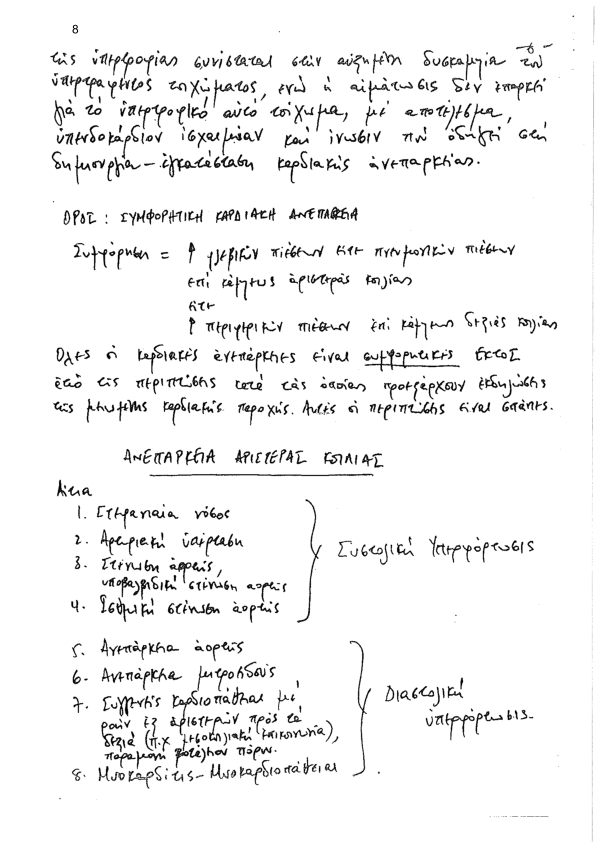 8
τῆς ὑπερτροφίας συνίσταται στὴν αὐξημένη δυσκαμψία τοῦ
ὑπερτραφέντος τοιχώματος, ἐνῶ ἡ αἱμάτωσις δὲν ἐπαρκεῖ
γιὰ τὸ ὑπερτροφικὸ αὐτὸ τοίχωμα, μὲ ἀποτέλεσμα,
ὑπενδοκάρδιον ἰσχαιμίαν καὶ ἴνωσιν ποὺ ὁδηγεῖ στὴ
δημιουργία – ἐγκατάσταση καρδιακῆς ἀνεπαρκείας.
ΟΡΟΣ : ΣΥΜΦΟΡΗΤΙΚΗ ΚΑΡΔΙΑΚΗ ΑΝΕΠΑΡΚΕΙΑ
Συμφόρηση = ↑ φλεβικῶν πιέσεων εἴτε πνευμονικῶν πιέσεων
ἐπὶ κάμψεως ἀριστερᾶς κοιλίας
εἴτε
↑ περιφερικῶν πιέσεων ἐπὶ κάμψεως δεξιᾶς κοιλίας
Ὅλες οἱ καρδιακὲς ἀνεπάρκειες εἶναι συμφορητικὲς ἐκτὸς
ἀπὸ τὶς περιπτώσεις κατὰ τὰς ὁποίας προεξάρχουν ἐκδηλώσεις
τῆς μειωμένης καρδιακῆς παροχῆς. Αὐτὲς οἱ περιπτώσεις εἶναι σπάνιες.
ΑΝΕΠΑΡΚΕΙΑ ΑΡΙΣΤΕΡΑΣ ΚΟΙΛΙΑΣ
Αἴτια
1. Στεφανιαία νόσος
2. Ἀρτηριακὴ ὑπέρταση
3. Στένωση ἀορτῆς,
ὑποβαλβιδικὴ στένωση ἀορτῆς
4. Ἰσθμικὴ στένωση ἀορτῆς
Συστολικὴ Ὑπερφόρτωσις
5. Ἀνεπάρκεια ἀορτῆς
6. Ἀνεπάρκεια μιτροειδοῦς
7. Συγγενεῖς καρδιοπάθειαι μὲ
ροὴν ἐξ ἀριστερῶν πρὸς τὰ
δεξιά (π.χ μεσοκοιλιακὴ ἐπικοινωνία),
παραμονὴ βοταλείου πόρου.
8. Μυοκαρδίτις – Μυοκαρδιοπάθειαι.
Διαστολικὴ
ὑπερφόρτωσις